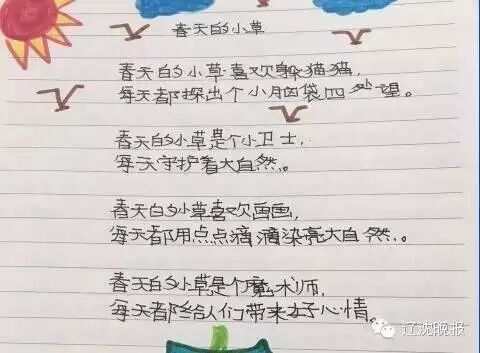 春天的小草
春天的小草喜欢躲猫猫,
每天都探出个小脑袋四处望。
春天的小草是个小卫士,
每天守护着大自然。
春天的小草喜欢画画,
每天都用点点滴滴染亮大自然。
春天的小草是个魔术师,
每天都给人们带来好心情。
辽沈晚报